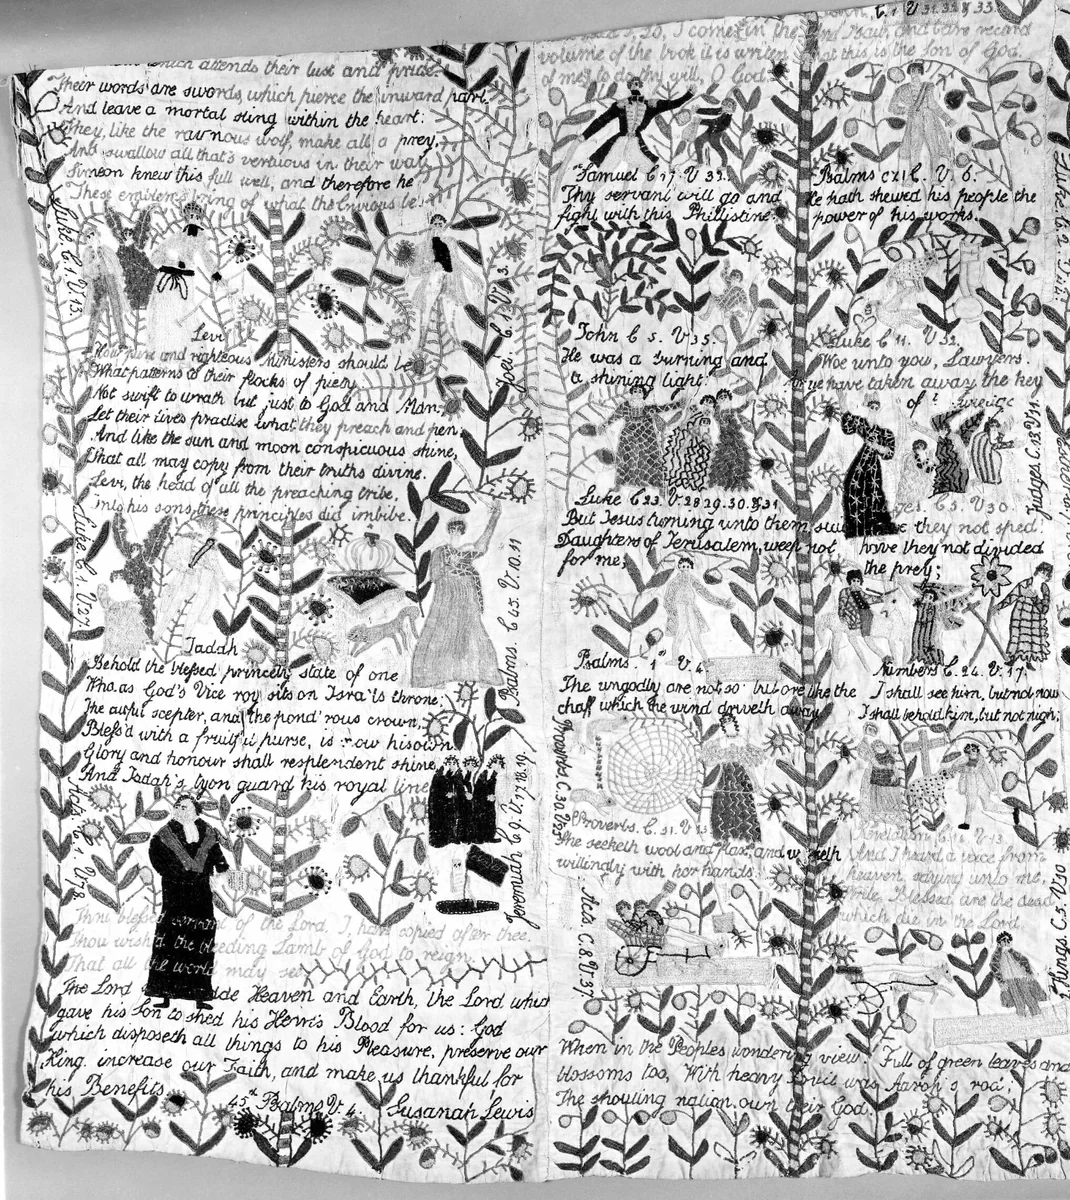 which attends their lust and pride.
Their words are swords, which pierce the inward part.
And leave a mortal sting within the heart:
They, like the rav'nous wolf, make all a prey,
And swallow all that's vertuous in their way
Simeon knew this full well, and therefore he
These of what the Envious be.
Luke C 1. V. 13.
Joel C 1 V 3.
Levi
How pure and righteous Ministers should be
What patterns to their flocks of piety.
Not swift to wrath but just to God and Man;
Let their lives practise what they preach and pen;
And like the sun and moon conspicuous shine,
That all may copy from their truths divine.
Levi, the head of all the preaching tribe.
into his sons these principles did imbibe.
Luke C 1. V. 27
Psalms. C 45. V. 10. 11
Iadah
Behold the blessed princely state of one
Who as God's Vice roy sits on Isra'ls throne;
The awful scepter, and the pond'rous crown,
Bless'd with a fruitful purse, is now his own.
Glory and honour shall resplendent shine,
And Iadah's lyon guard his royal line
Acts. C. 1. V. 78.
Jeremiah C 9. V. 17. 18. 19.
Thou blessed servant of the Lord, I have copied after thee.
Thou wish'd the bleeding Lamb of God to reign.
That all the world may see
The Lord made Heaven and Earth, the Lord who
gave his Son to shed his Heart's Blood for us: God
which disposeth all things to his Pleasure, preserve our
King. increase our Faith, and make us thankful for
his Benefits.
45th Psalms V. 4. Susanah Lewis
I come in the
volume of the book it is written
of me, to do thy will, O God.
Samuel C 17. V 32.
Thy servant will go and
fight with this Phillistine.
John C 5. V 35.
He was a burning and
a shining light.
Luke C 23. V 28 29. 30. & 31
But Jesus turning unto them said
Daughters of Jerusalem, weep not
for me,
Psalms. 1st V. 4
The ungodly are not so: but are like the
chaff which the wind driveth away.
Proverbs. C. 30. V.
Proverbs. C. 31. V. 13
She seeketh wool and flax, and worketh
willingly with her hands.
Acts. C. 8 V. 37.
When in the Peoples wondering view
blossoms too, With heavy was Aaron's rod;
The shouting nation own their God.
C. 1 V 31. 32. & 33.
And I saw, and bare record
that this is the Son of God.
Psalms CXI C. V. 6.
He hath shewed his people the
power of his works.
Luke C. 2. V.
Luke C 11. V 52.
Woe unto you, Lawyers.
for ye have taken away the key
of
Judges C. 5. V.
Judges. C. 5. V 30.
have they not sped.
have they not divided
the prey;
Numbers C. 24. V. 17.
I shall see him, but not now
I shall behold him, but not nigh;
Revelation C 14 V. 13.
And I heard a voice from
heaven, saying unto me,
Write, Blessed are the dead
which die in the Lord,
Kings. C. 5. V. 10
Full of green leaves and